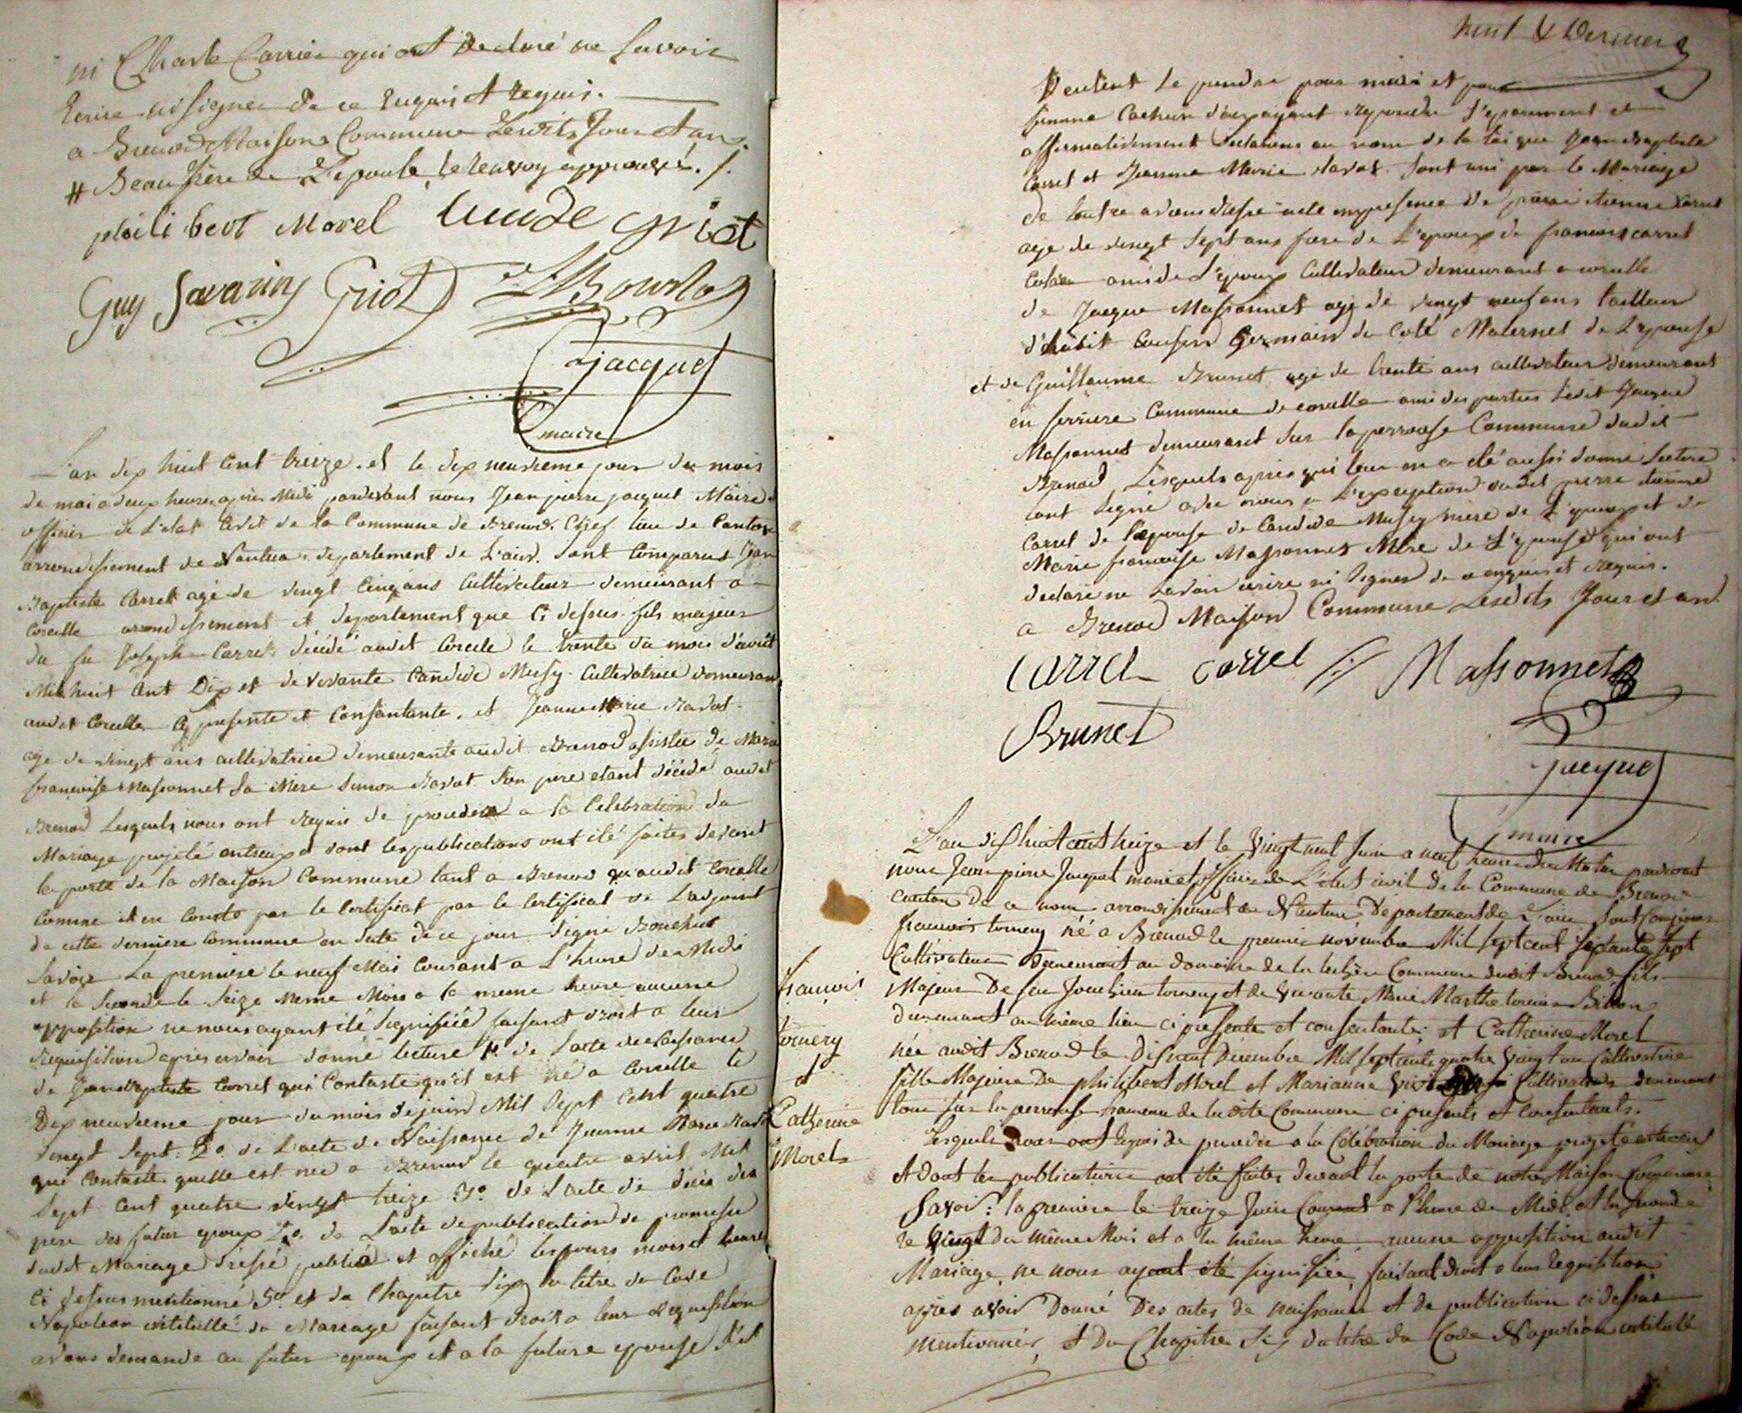 ni Charle Carrier qui ont Declaré ne Savoir
Ecrire ni signer de ce Enquis et Requis.
a Brenod Maison Commune Lesdits Jour et an
# Beaufrere de L'epouse, le renvoy approuvé. /.
philibert Morel Claude Griot
Guy Savarin Griot Bourdo
Jacquet
maire
L'an dix huit Cent treize. et le dix neuvieme jour du mois
de mai a deux heures après Midi pardevant nous Jean pierre jacquet Maire
officier de L'etat Civil de la Commune de Brenod. Chef lieu de Canton
arrondissement de Nantua departement de L'ain. Sont Comparus Jean
Baptiste Carret agé de vingt Cinq ans Cultivateur demeurant a
Corcelle arrondissement et departement que Ci dessus fils majeur
du fu Joseph Carret décédé audit Corcelle le trente du mois d'août
Mil huit Cent Dix et de vivante Candide Mussy Cultivatrice demeurant
audit Corcelle Cy presente et Consentante. et Jeanne Marie Ravat
age de vingt ans cultivatrice demeurante audit Brenod assistée de Marie
francoise Massonnet Sa Mere Simon Ravat Son pere etant décédé audit
Brenod Lesquels nous ont Requis de proceder a la Celebration du
Mariage projeté entreux et dont les publications ont été faites devant
la porte de la Maison Commune tant a Brenod qu'audit Corcelle
Comme il en Conste par le Certificat par le Certificat de L'adjoint
de cette derniere Commune en date de ce jour Signé Bonehut
Savoir La premiere le neuf Mai Courant a L'heure de Midi
et la Seconde le Seize meme Mois a la meme heure aucune
opposition ne nous ayant été Signifiée faisant droit a leur
Requisition après avoir donné lecture 1º. de L'acte de Naissance
de Jean Baptiste Carret qui Contaste qu'il est né a Corcelle le
Dix neuvieme jour du mois de juin Mil Sept Cent quatre
vingt Sept. 2º. de L'acte de Naissance de Jeanne Marie Ravat
qui Contaste quelle est née a Brenod le quatre avril Mil
Sept Cent quatre vingt treize 3º. de L'acte de décès du
pere du futur epoux 4º. de L'acte de publication de promesse
dudit Mariage dréssé publié et affiché les jours mois et heures
Ci dessus mentionné 5º. et du Chapitre Six du titre du Code
Napoleon intitullé du Mariage faisant droit a leur Requisition
avons demandé au futur epoux et a la future epouse S'il
huit & Dernier
Veulent Se prendre pour mari et pour
femme Chacun d'eux ayant repondu Séparement et
affirmativement Declarons au nom de la Loi que Jean Baptiste
Carret et Jeanne Marie Ravat Sont uni par le Mariage
de Tout ce avons dressé acte en presence de pierre etienne Carret
age de vingt Sept ans frere de L'epoux de francois carret
ami de L'epoux Cultivateur demeurant a corcelle
de Jacque Massonnet agé de vingt neuf ans tailleur
d'habit Cousin Germain du Coté Maternel de L'epouse
et de Guillaume Brunet agé de trente ans cultivateur demeurant
en ferriere Commune de corcelle ami des parties Ledit Jacque
Massonnet demeurant Sur la perrouse Commune dudit
Brenod Lesquels après qu'il leur en a été aussi donné Lecture
ont Signé avec nous a L'exception dudit pierre etienne
Carret de l'epouse de Candide Mussy mere de L'epoux et de
Marie francoise Massonnet Mere de L'epouse qui ont
declaré ne Savoir ecrire ni Signer de ce enquis et Requis.
a Brenod Maison Commune Lesdits Jour et an.
Carret Carret Massonnet
Brunet
jacquet
maire
L'an dix huit cent treize et le Vingt neuf Juin a neuf heures du Matin pardevant
nous Jean pierre Jacquet maire et officier de L'état civil de la Commune de Brenod
canton de ce nom arrondissement de Nantua Departement de L'ain Sont Comparus
francois tornery né a Brenod le premier novembre Mil Sept cent Septante Sept
Cultivateur demeurant au domaine de la Commune dudit Brenod fils
Majeur De feu tornery et de vivante Marie Marthe
demeurant au même lieu ci presente et consentante, et Catherine Morel
née audit Brenod le Dix huit Décembre Mil Sept cent quatre Vingt un Cultivatrice
fille Majeure De philibert Morel et Marianne Griot Cultivateurs demeurant
tous Sur la perrouse hameau de la dite Commune ci presents et consentants.
Lesquels nous ont Requis de proceder a la Célébration du Mariage projeté entre eux
et dont les publications ont été faites devant la porte de notre Maison Commune
Savoir: la premiere le treize Juin Courant a l'heure de Midi, et la Seconde
le Vingt du même Mois et a la même heure, aucune opposition audit
Mariage ne nous ayant été Signifiée, faisant droit a leur Requisition,
après avoir Donné Des actes de naissance et de publication ci dessus
mentionnés, et Du Chapitre Six du titre du Code Napoléon intitullé
francois
tornery
et
Catherine
Morel